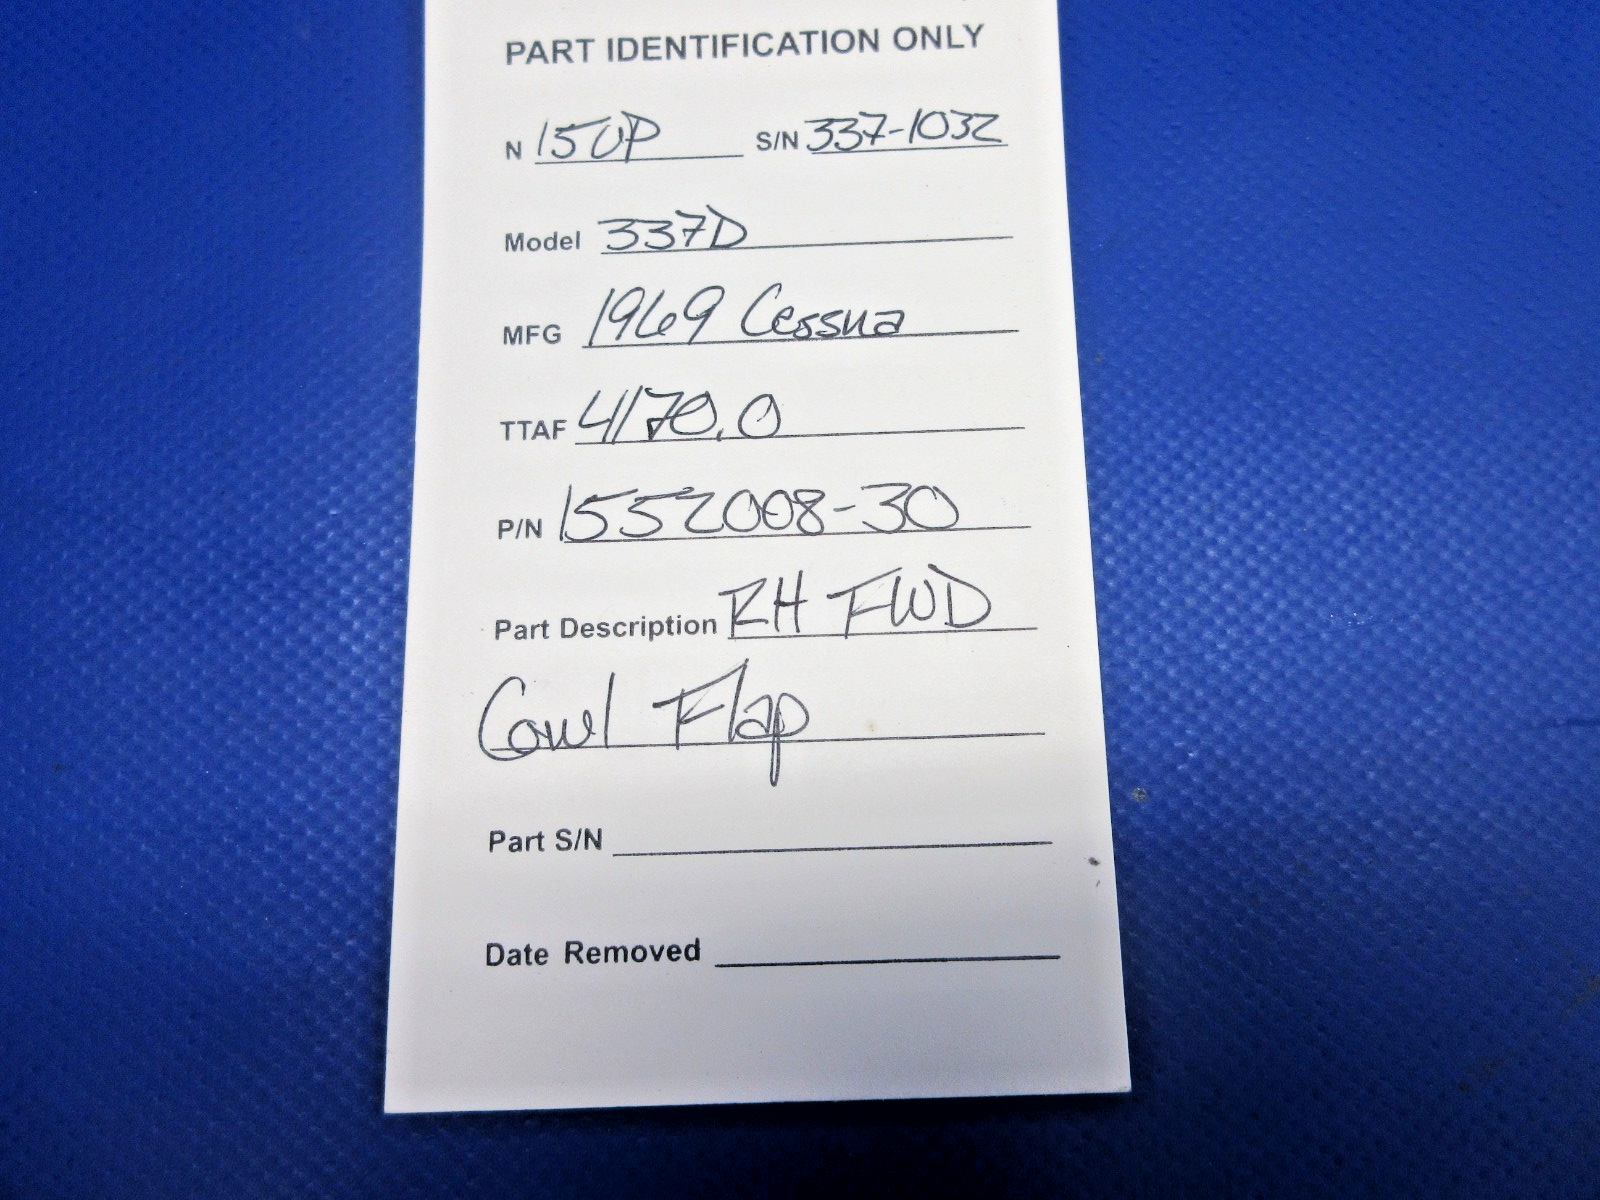 PART IDENTIFICATION ONLY
N 150P S/N 337-1032
Model 337D
MFG 1969 Cessna
TTAF 4170.0
P/N 1552008-30
Part Description RH FWD
Cowl Flap
Part S/N
Date Removed